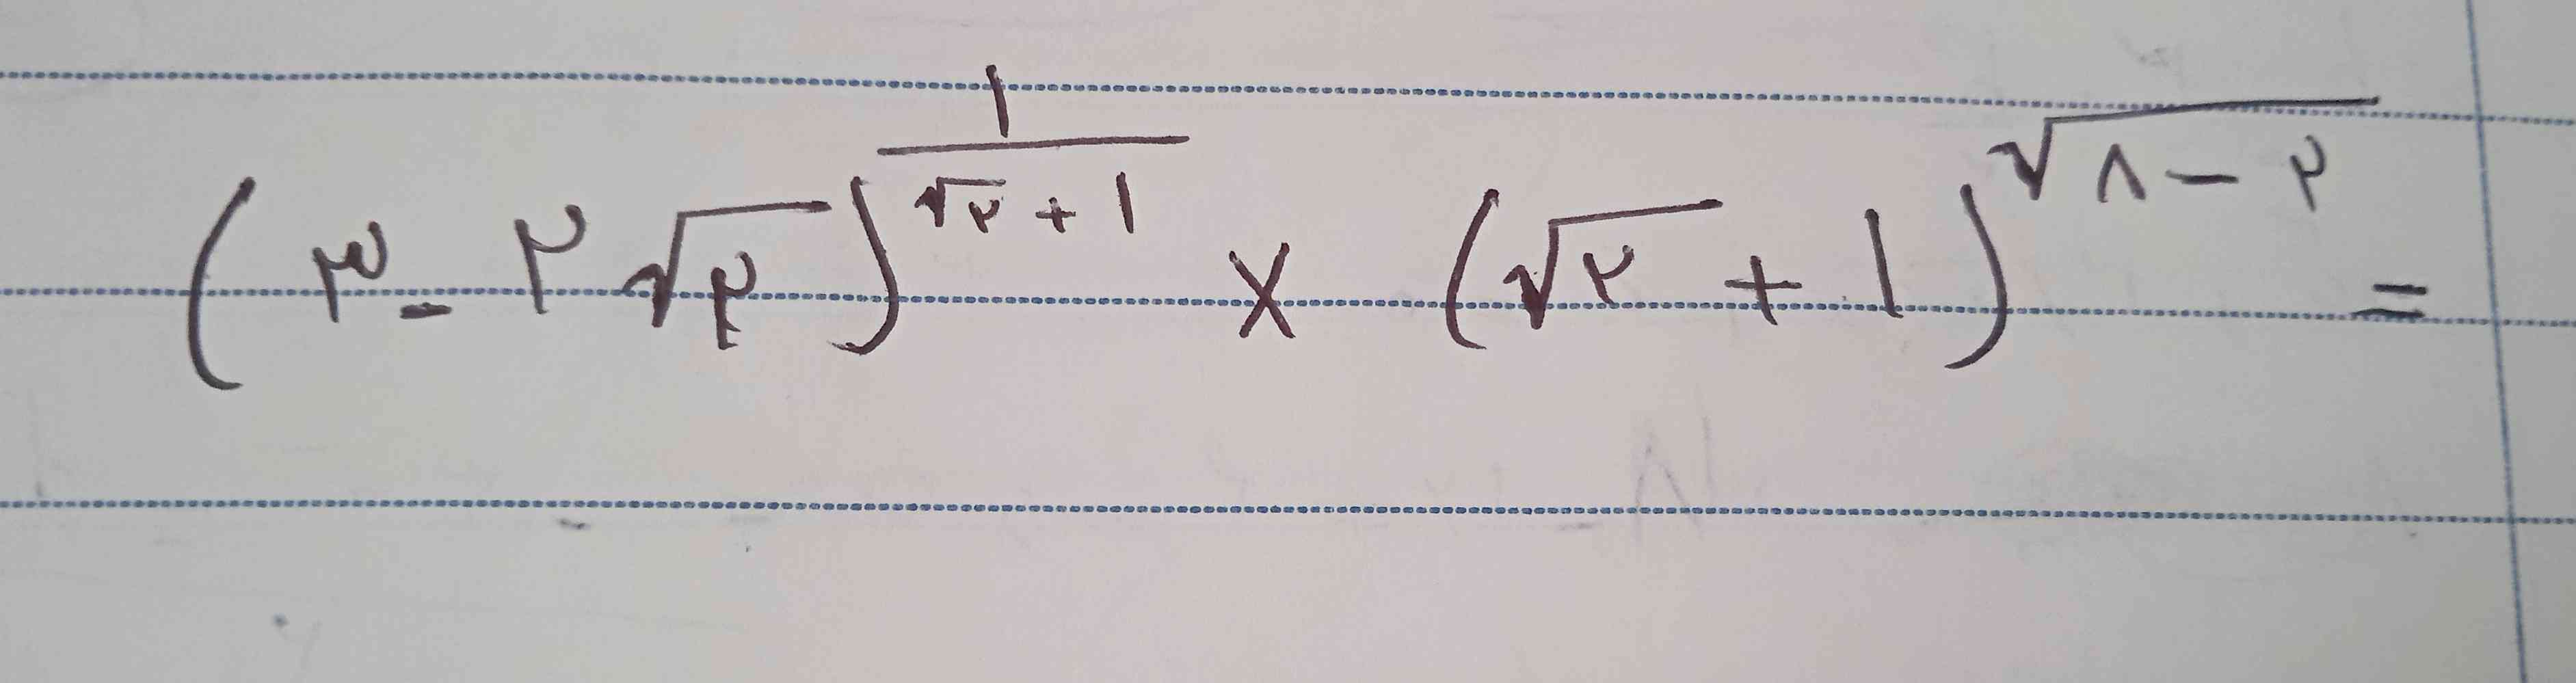 (۳ - ۲√۲)^(۱/(√۲ + ۱)) × (√۲ + ۱)^(√(۸ - ۲)) =